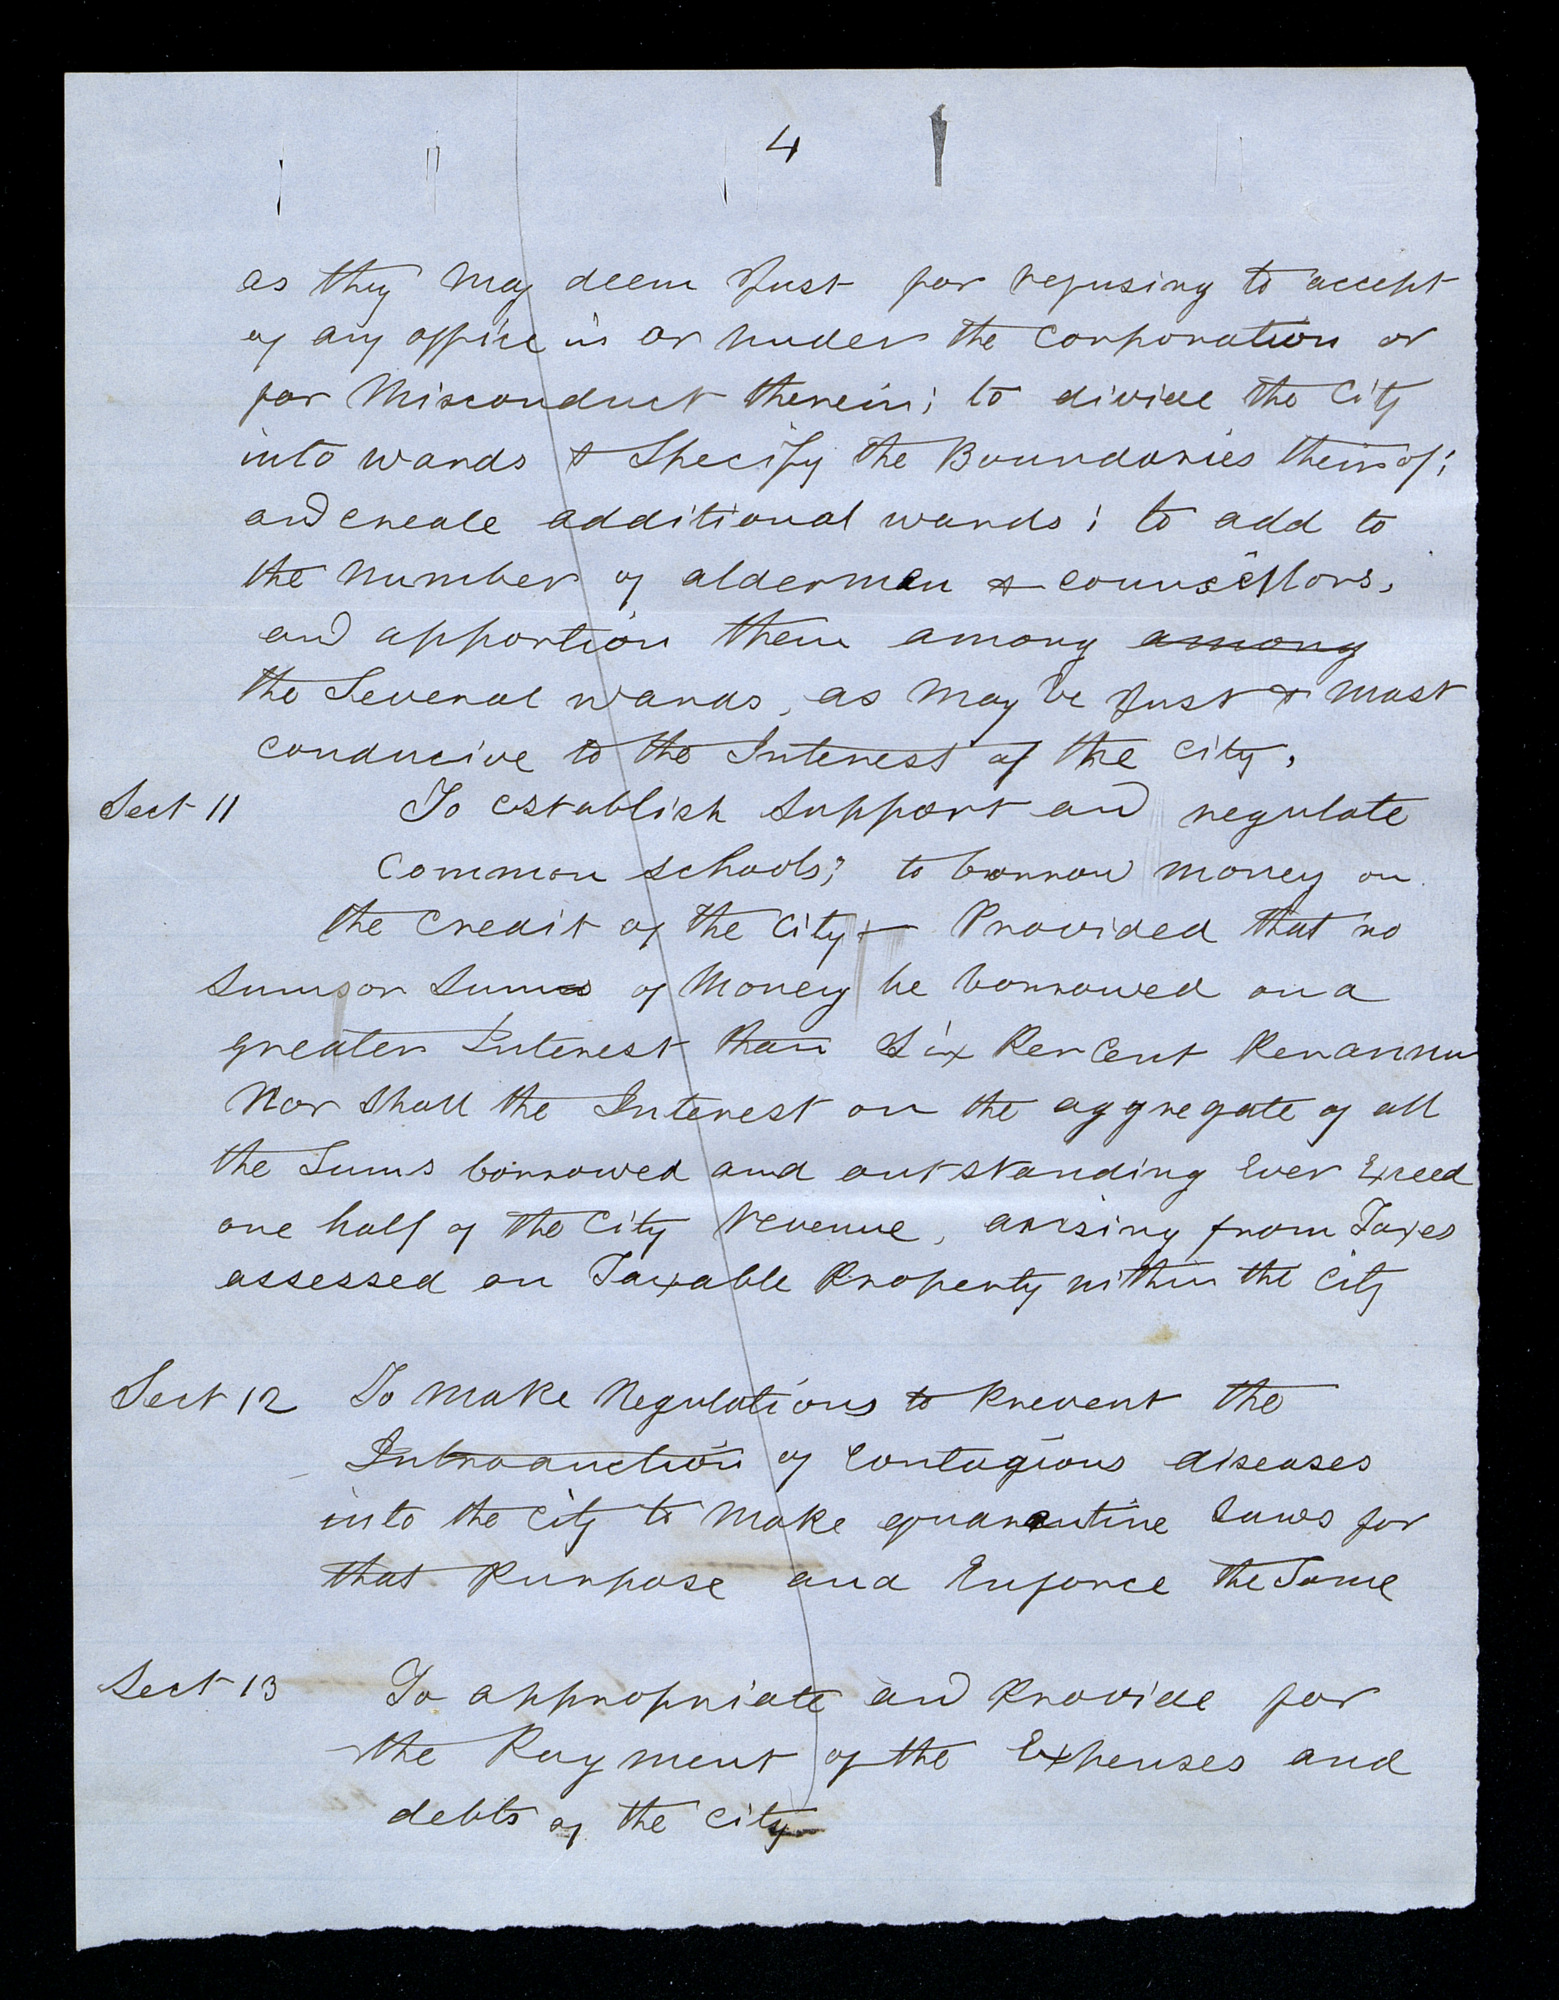 4
as they may deem Just for refusing to accept
of any office in or under the Corporation or
for Misconduct therein; to divide the City
into wards & Specify the Boundaries theirof;
and create additional wards; to add to
the number of aldermen & councillors,
and apportion them among among
the Several wards, as may be Just & most
conducive to the Interest of the city.
Sect 11 To establish support and regulate
Common schools; to borrow money on
the credit of the city - Provided that no
sum or sums of Money be borrowed on a
greater Interest than Six Per Cent Per annum
Nor shall the Interest on the aggregate of all
the Sums borrowed and outstanding Ever Exceed
one half of the City revenue, arising from Taxes
assessed on Taxable Property within the City
Sect 12 To make Regulations to Prevent the
Introduction of Contagious diseases
into the City to make quarantine Laws for
that Purpose and Enforce the Same
Sect 13 To appropriate and Provide for
the Payment of the Expenses and
debts of the City